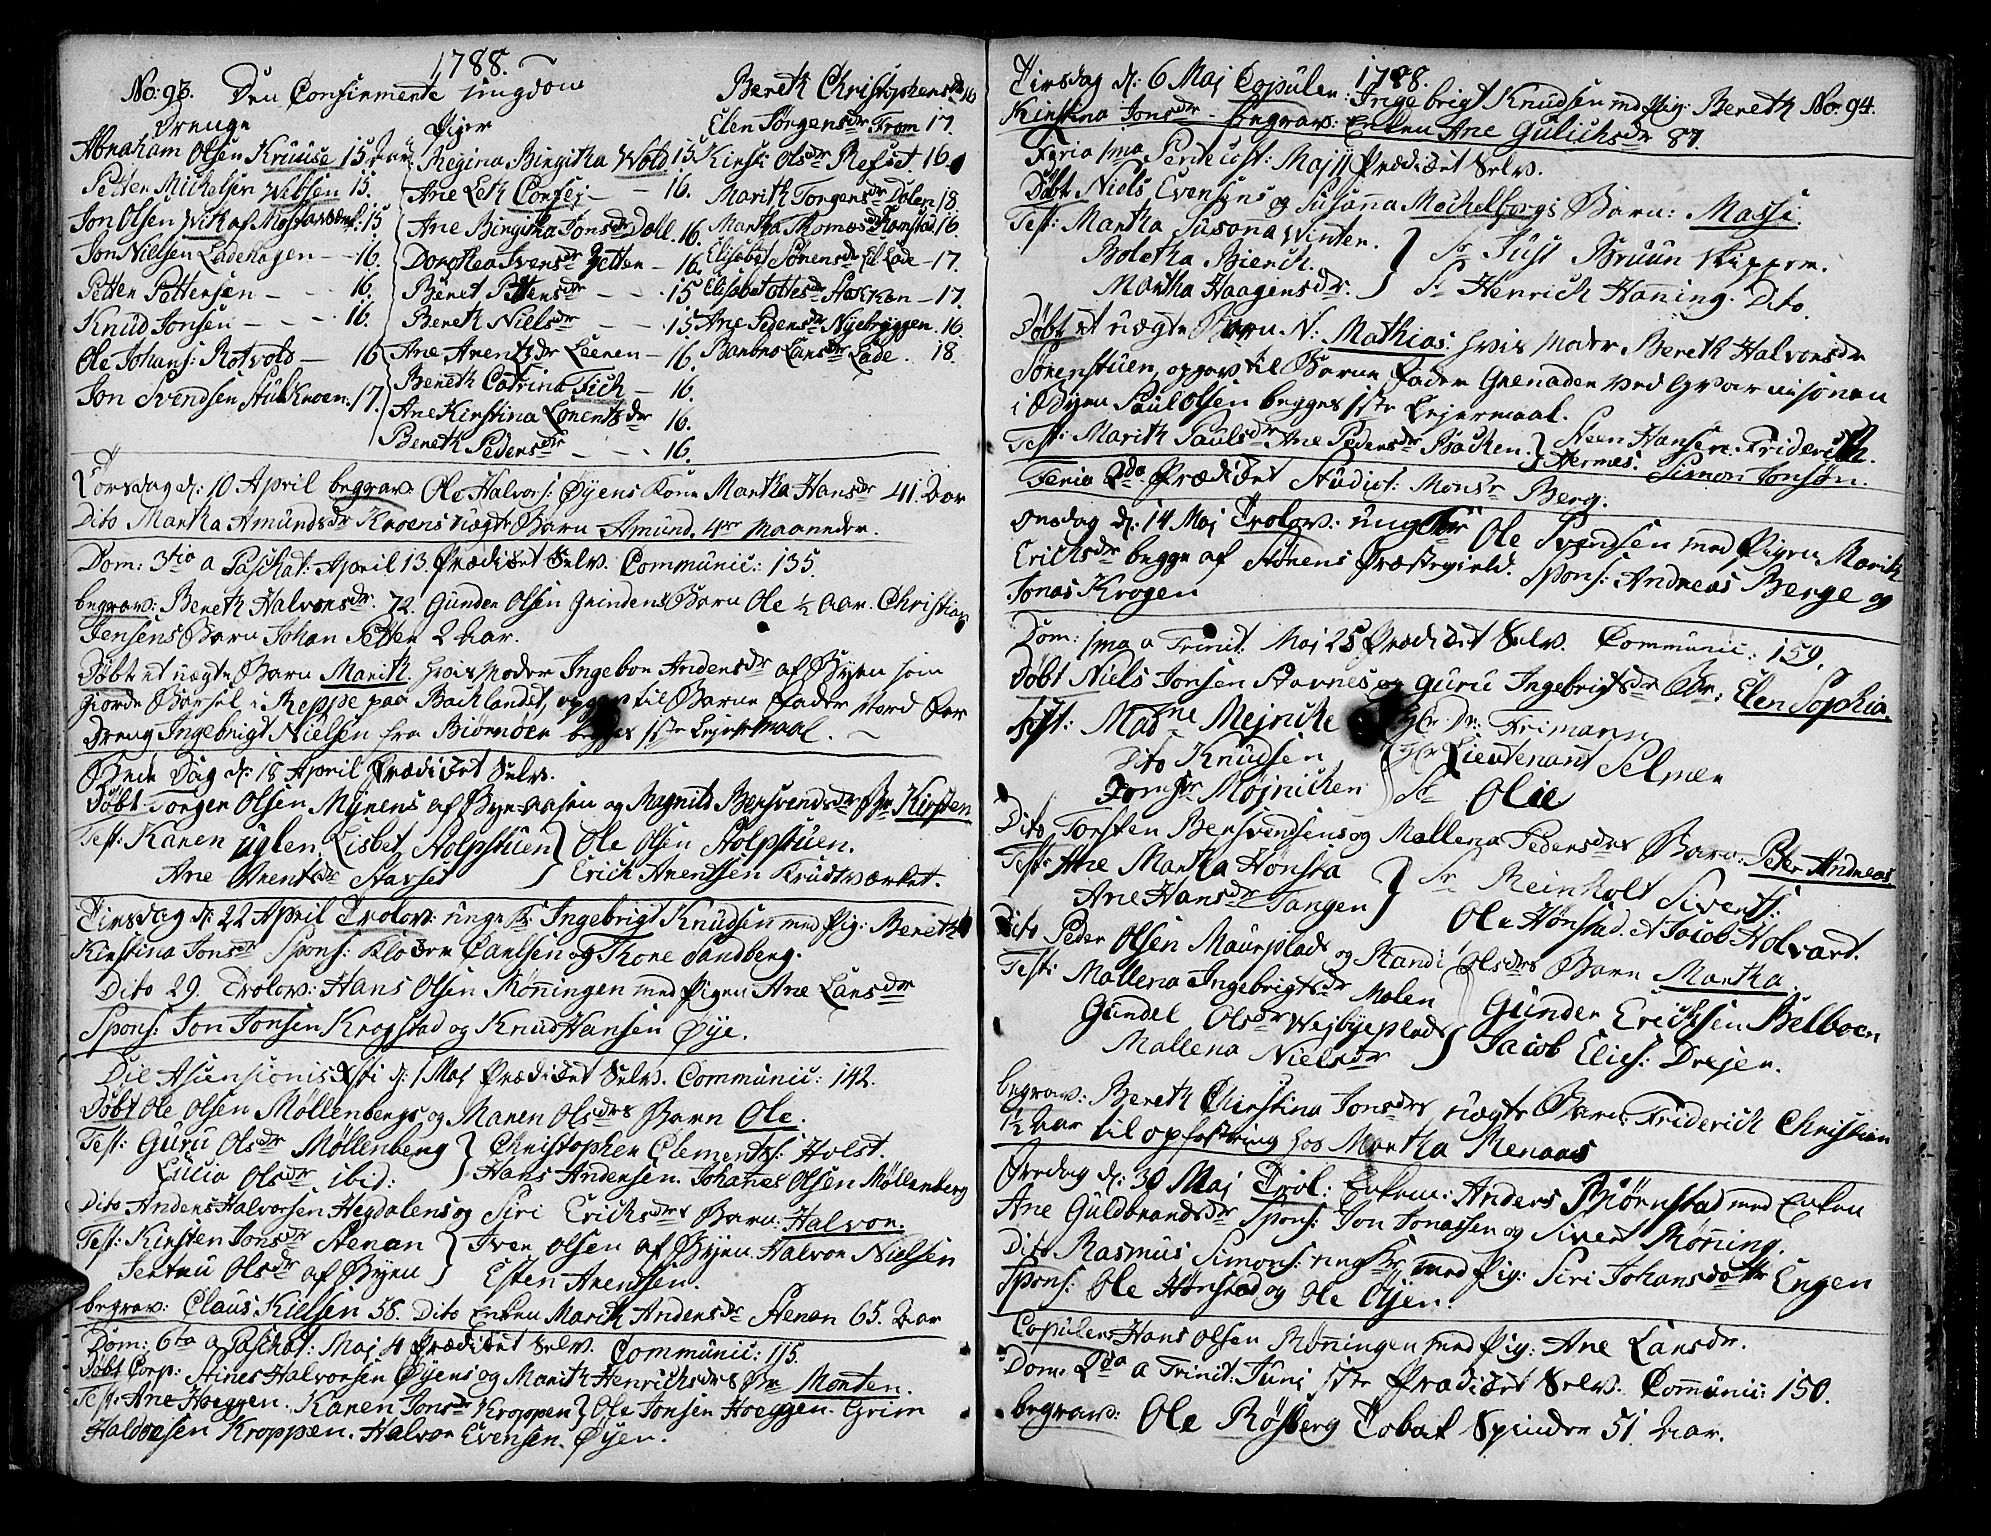 1788.
No: 93. Den Confirmerte ungdom
Drenge
Abraham Olsen Kruuse 15 Aar
Petter Michelsen Wibsen 15.
Jon Olsen Wik af 15
Jon Nielsen Ladehagen - - 16.
Petter Pettersen - - - 16.
Knud Jonsen - - - 16.
Ole Johans: Rotvold - 16
Jon Svendsen 17.
Piger
Regina Birgitha Wold 15
Ane Leth - 16.
Ane Birgitha Jonsdr Dall 16.
Dorothea Ivensdr - 16.
Beret Pettersdr - - 15
Bereth Nielsdr - - 15
Ane Arentzdr Leeren - 16.
Bereth Catrina Fich - 16.
Ane Kirstina Lorentzdr 16.
Bereth Pedersdr - - - 16.
Bereth Christophersdr 16
Elen Jørgensdr From 17.
Kirst: Olsdr Refset. 16.
Marith Torgersdr Dolen 18
Martha Thomasdr Ramstad 16
Elisabet Sørensdr Lade - 17.
Elisabet Ottesdr - 17.
Ane Pedersdr Nyebryggen. 16
Barbro Larsdr Lade. 18.
Torsdag d: 10 April begrav: Ole Halvors: Øyens Kone Martha Hansdr 41. Aar
Dito Martha Amundsdr Kroens uægte Barn Amund. 4re Maaneder.
Dom: 3tia a Paschat: April 13. Prædicet Selv. Communic: 135.
begrav: Bereth Halvorsdr. 72. Gunder Olsen Grindens Barn Ole ½ Aar. Christian
Jensens Barn Johan Petter 2 Aar.
Døbt et uægte Barn Marith. hvis Moder Ingebor Andersdr af Byen som
giorde Barsel i Reppe paa Backlandet, opgav til Barne Fader Nord Far
Dreng Ingebrigt Nielsen fra Biørnøer begges 1ste Lejermaal.
Bede Dag d: 18 April Prædicet Selv.
Døbt Torger Olsen Myrens af Byeaasen og Magnild Bersvendsdr Br Kirsten
Test: Karen Uglen, Lisbet Holpstuen } Ole Olsen Holpstuen.
Ane Arentsdr Stavset } Erich Arentsen Krudtværket.
Tirsdag d: 22 April Trolov: ungk: Ingebrigt Knudsen med Pig: Bereth
Kirstina Jonsdr Spons: Klocker Carlsen og Thore Sandberg.
Dito 29. Trolov: Hans Olsen Rønningen med Pigen Ane Larsdr
Spons: Jon Jonsen Krogstad og Knud Hansen Øye.
Die Asensionis Xsti d: 1 Maj Prædicet Selv. Communic: 142.
Døbt Ole Olsen Møllenbergs og Maren Olsdrs Barn Ole.
Test: Guru Olsdr Møllenberg } Christopher Clements: Holst.
Lucia Olsdr ibid: } Hans Andersen. Johanes Olsen Møllenberg
Dito Anders Halvorsen Hegdalens og Siri Erichsdrs Barn: Halvor.
Test: Kirsten Jonsdr Stenan } Iver Olsen af Byen. Halvor Nielsen
Olsdr af Byen } Esten Arentsen.
begrav: Claus Kielsen 58. Dito Enken Marith Andersdr Stenan 65. Aar
Dom: 6ta a Paschat: Maj 4 Prædicet Selv. Communic: 115.
Døbt Corp: Stines Halvorsen Øyens og Marith Henrichsdrs Br Morten.
Test: Ane Hoeggen. Karen Jonsdr Kroppen } Ole Jonsen Hoeggen. Grim
Haldorsen Kroppen. Halvor Evensen. Øyen.
1788.
Tirsdag d: 6 Maj Copuler: Ingebrigt Knudsen med Pig: Bereth No: 94.
Kirstina Jonsdr - begrav: Enken Ane Gulichsdr 87.
Feria 1ma Pentecost: Maj 11 Prædicet Selv.
Døbt Niels Evensens og Susanna Mechelborgs Barn: Massi.
Test: Martha Susanna Winter. } Sr Just Bruun Skipper.
Boletha Bierck. } Sr Henrich Haning. Dito.
Martha Haagensdr.
Døbt et uægte Barn N: Mathias. hvis Moder Bereth Halvorsdr
Sørenstuen, opgav til Barne Fader Grenader ved Gvarnisonen
i Byen Paul Olsen begges 1ste Lejermaal.
Test: Marith Paulsdr Ane Pedersdr Backen. } Steen Hansen. Friderich
Hermes. Simon Jonsøn.
Feria 2da Prædicet Studiot: Monsr Berg.
Onsdag d: 14 Maj Trolov: ungkr Ole Svendsen med Pigen Marith
Erichsdr begge af Størens Præstegield. Spons: Andreas Berge og
Jonas Krogen
Dom: 1ma a Trinit. Maj 25 Prædicet Selv. Communic: 159.
Døbt Niels Jonsen Stavnes og Guru Ingebrigtsdr Br: Elen Sophia.
Test: Madme Mejnicke Hr Dr: Frimann
Dito Knudsen Hr Lieutenant Selmer
Jomfr Møjnichen Sr Olie
Dito Torsten Bersvendsens og Mallena Pedersdrs Barn: Peter Andreas
Test: Ane Martha Hønsta } Sr Reinholt Siverts:
Ane Hansdr Tangen } Ole Hønstad. et Jacob Holvart.
Dito Peder Olsen Maurplads og Randi Olsdrs Barn Martha.
Test: Mallena Ingebrigtsdr Molen } Gunder Erichsen Belboen
Gundel Olsdr Wejbyeplads } Jacob Elies: Drejer.
Mallena Nielsdr
begrav: Bereth Christina Jonsdrs uægte Barn: Friderich Christian
½ Aar til opfostring hos Martha Renaas
Fredag d: 30 Maj Trol: Enkem: Anders Biørnstad med Enken
Ane Guldbrandsdr Spons: Jon Jonassen og Sivert Røning.
Dito Rasmus Simons: ungkr med Pig: Siri Johansdotter Engen
Spons: Ole Hønstad og Ole Olsen.
Copuler Hans Olsen Rønningen med Pig: Ane Larsdr.
Dom: 2da a Trinit: Junj 1ste Prædicet Selv. Communic: 150.
begrav: Ole Røsberg Tobak Spinder 51 Aar.